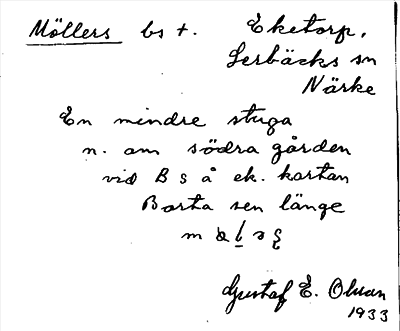 Möllers bs t. Eketorp,
Lerbäcks sn
Närke
En mindre stuga
n. om södra gården
vid B s å ek. kartan
Borta sen länge
m
Gustaf E. Olsson
1933